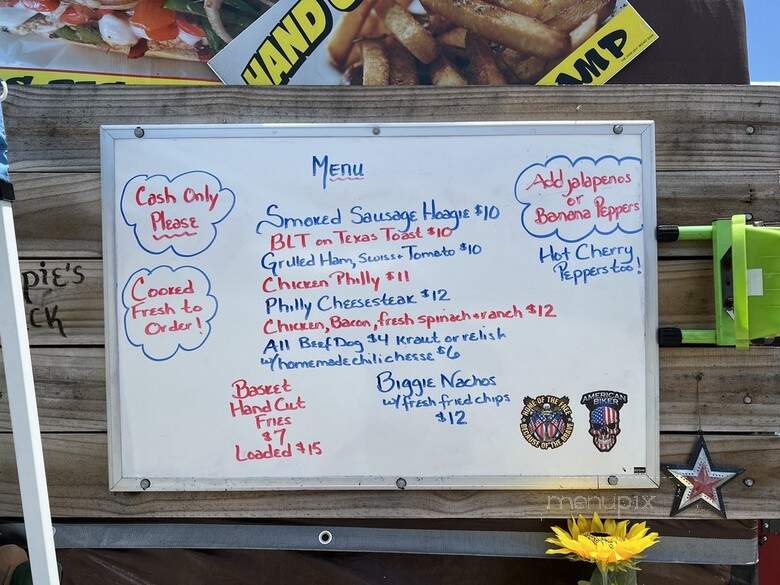 HAND C
AMP
Menu
Cash Only
Please
Add jalapenos
or
Banana Peppers
Hot Cherry
Peppers too!
Smoked Sausage Hoagie $10
BLT on Texas Toast $10
Grilled Ham, Swiss + Tomato $10
Chicken Philly $11
Philly Cheesesteak $12
Chicken, Bacon, fresh spinach + ranch $12
All Beef Dog $4 Kraut or relish
w/ homemade chili cheese $6
Cooked
Fresh to
Order!
pie's
ck
Basket
Hand Cut
Fries
$7
Loaded $15
Biggie Nachos
w/ fresh fried chips
$12
HOME OF THE FREE
BECAUSE OF THE BRAVE
AMERICAN
BIKER
menupix